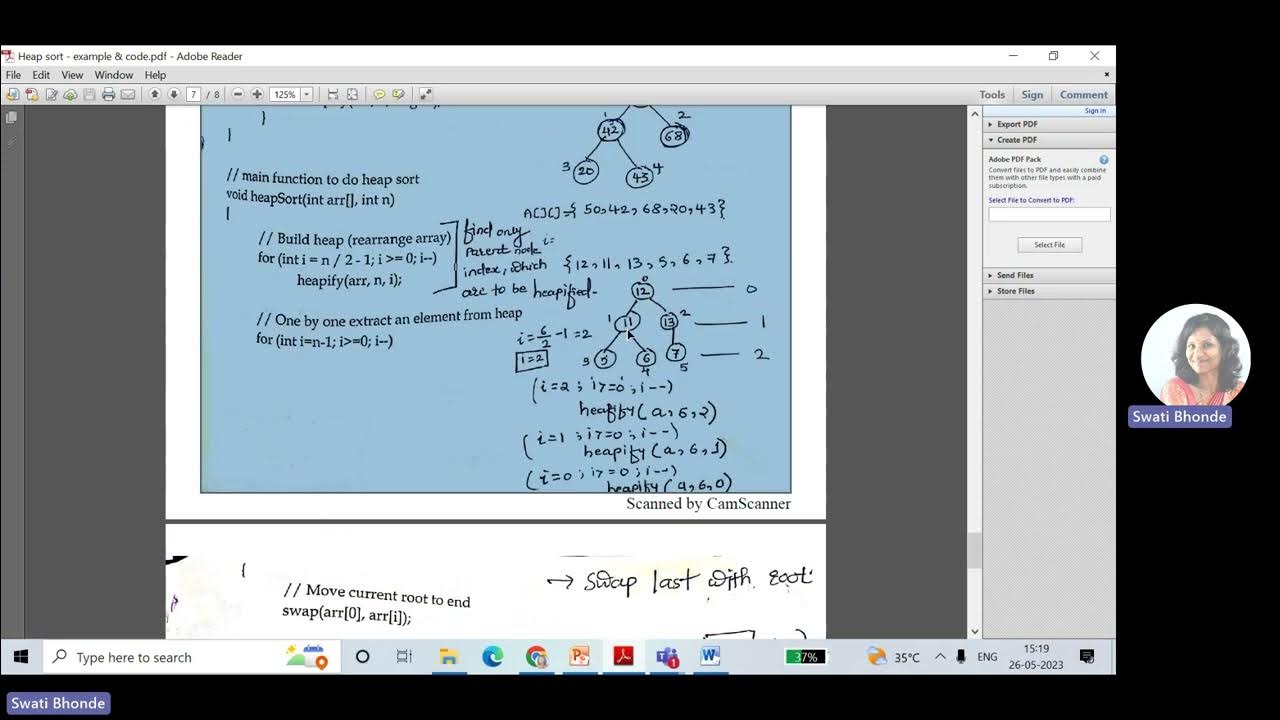 Heap sort - example & code.pdf - Adobe Reader
File Edit View Window Help
7 / 8 125%
Tools Sign Comment
Sign In
Export PDF
Create PDF
Adobe PDF Pack
Convert files to PDF and easily combine
them with other file types with a paid
subscription.
Select File to Convert to PDF:
Select File
Send Files
Store Files
}
}
1 2
42 68
3 20 43 4
A[]={ 50,42,68,20,43}
// main function to do heap sort
void heapSort(int arr[], int n)
{
// Build heap (rearrange array)
for (int i = n / 2 - 1; i >= 0; i--)
heapify(arr, n, i);
find only
parent node i=
index, which
are to be heapified-
{12,11,13,5,6,7}.
0
12 0
1 11 13 2 1
3 5 6 7 2
4 5
// One by one extract an element from heap
for (int i=n-1; i>=0; i--)
i=6/2 -1=2
i=2
(i=2 ; i>=0 ; i--)
heapify(a,6,2)
(i=1 ; i>=0 ; i--)
heapify(a,6,1)
(i=0 ; i>=0 ; i--)
heapify(a,6,0)
Scanned by CamScanner
{
// Move current root to end
swap(arr[0], arr[i]);
→ swap last with root
Swati Bhonde
Type here to search
37%
35°C
ENG
15:19
26-05-2023
1
Swati Bhonde